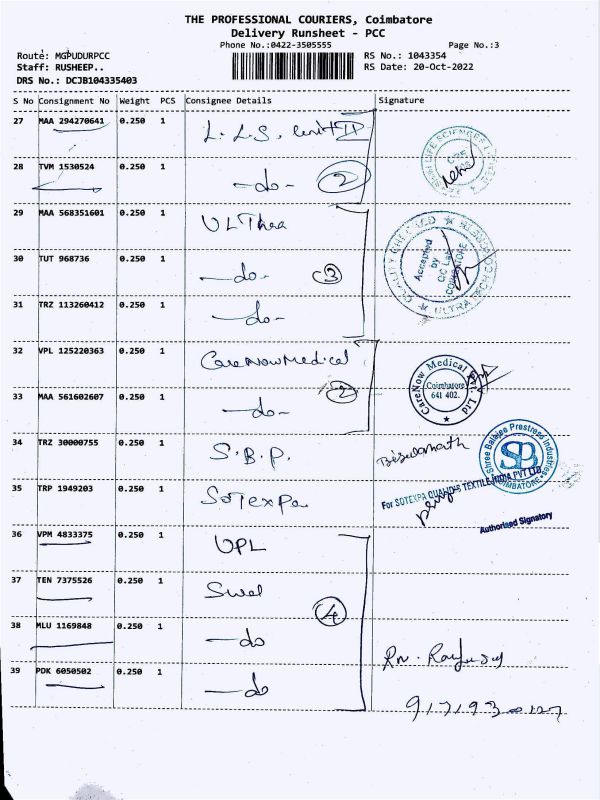 THE PROFESSIONAL COURIERS, Coimbatore
Delivery Runsheet - PCC
Phone No.:0422-3505555 Page No.:3
Route: MGPUDURPCC RS No.: 1043354
Staff: RUSHEEP.. RS Date: 20-Oct-2022
DRS No.: DCJB104335403
S No Consignment No Weight PCS Consignee Details Signature
27 MAA 294270641 0.250 1 L.L.S. Unit II
28 TVM 1530524 0.250 1 -do- 2
29 MAA 568351601 0.250 1
30 TUT 968736 0.250 1 -do- 3
31 TRZ 113260412 0.250 1 -do-
32 VPL 125220363 0.250 1 CareNowMedical
33 MAA 561602607 0.250 1 -do- 2
34 TRZ 30000755 0.250 1 S.B.P.
35 TRP 1949203 0.250 1 Sotexpa
36 VPM 4833375 0.250 1 UPL
37 TEN 7375526 0.250 1 4
38 MLU 1169848 0.250 1 -do
39 PDK 6050502 0.250 1 -do
LIFE SCIENCES
QUALITY CHECKED
Accepted
by
QC Lab
COIMBATORE
ULTRA TECH
CareNow Medical Pvt. Ltd
Coimbatore
641 402.
Shree Balajee Prestress Industries
COIMBATORE
For SOTEXPA QUALIDIS TEXTILE INDIA PVT LTD
Authorised Signatory